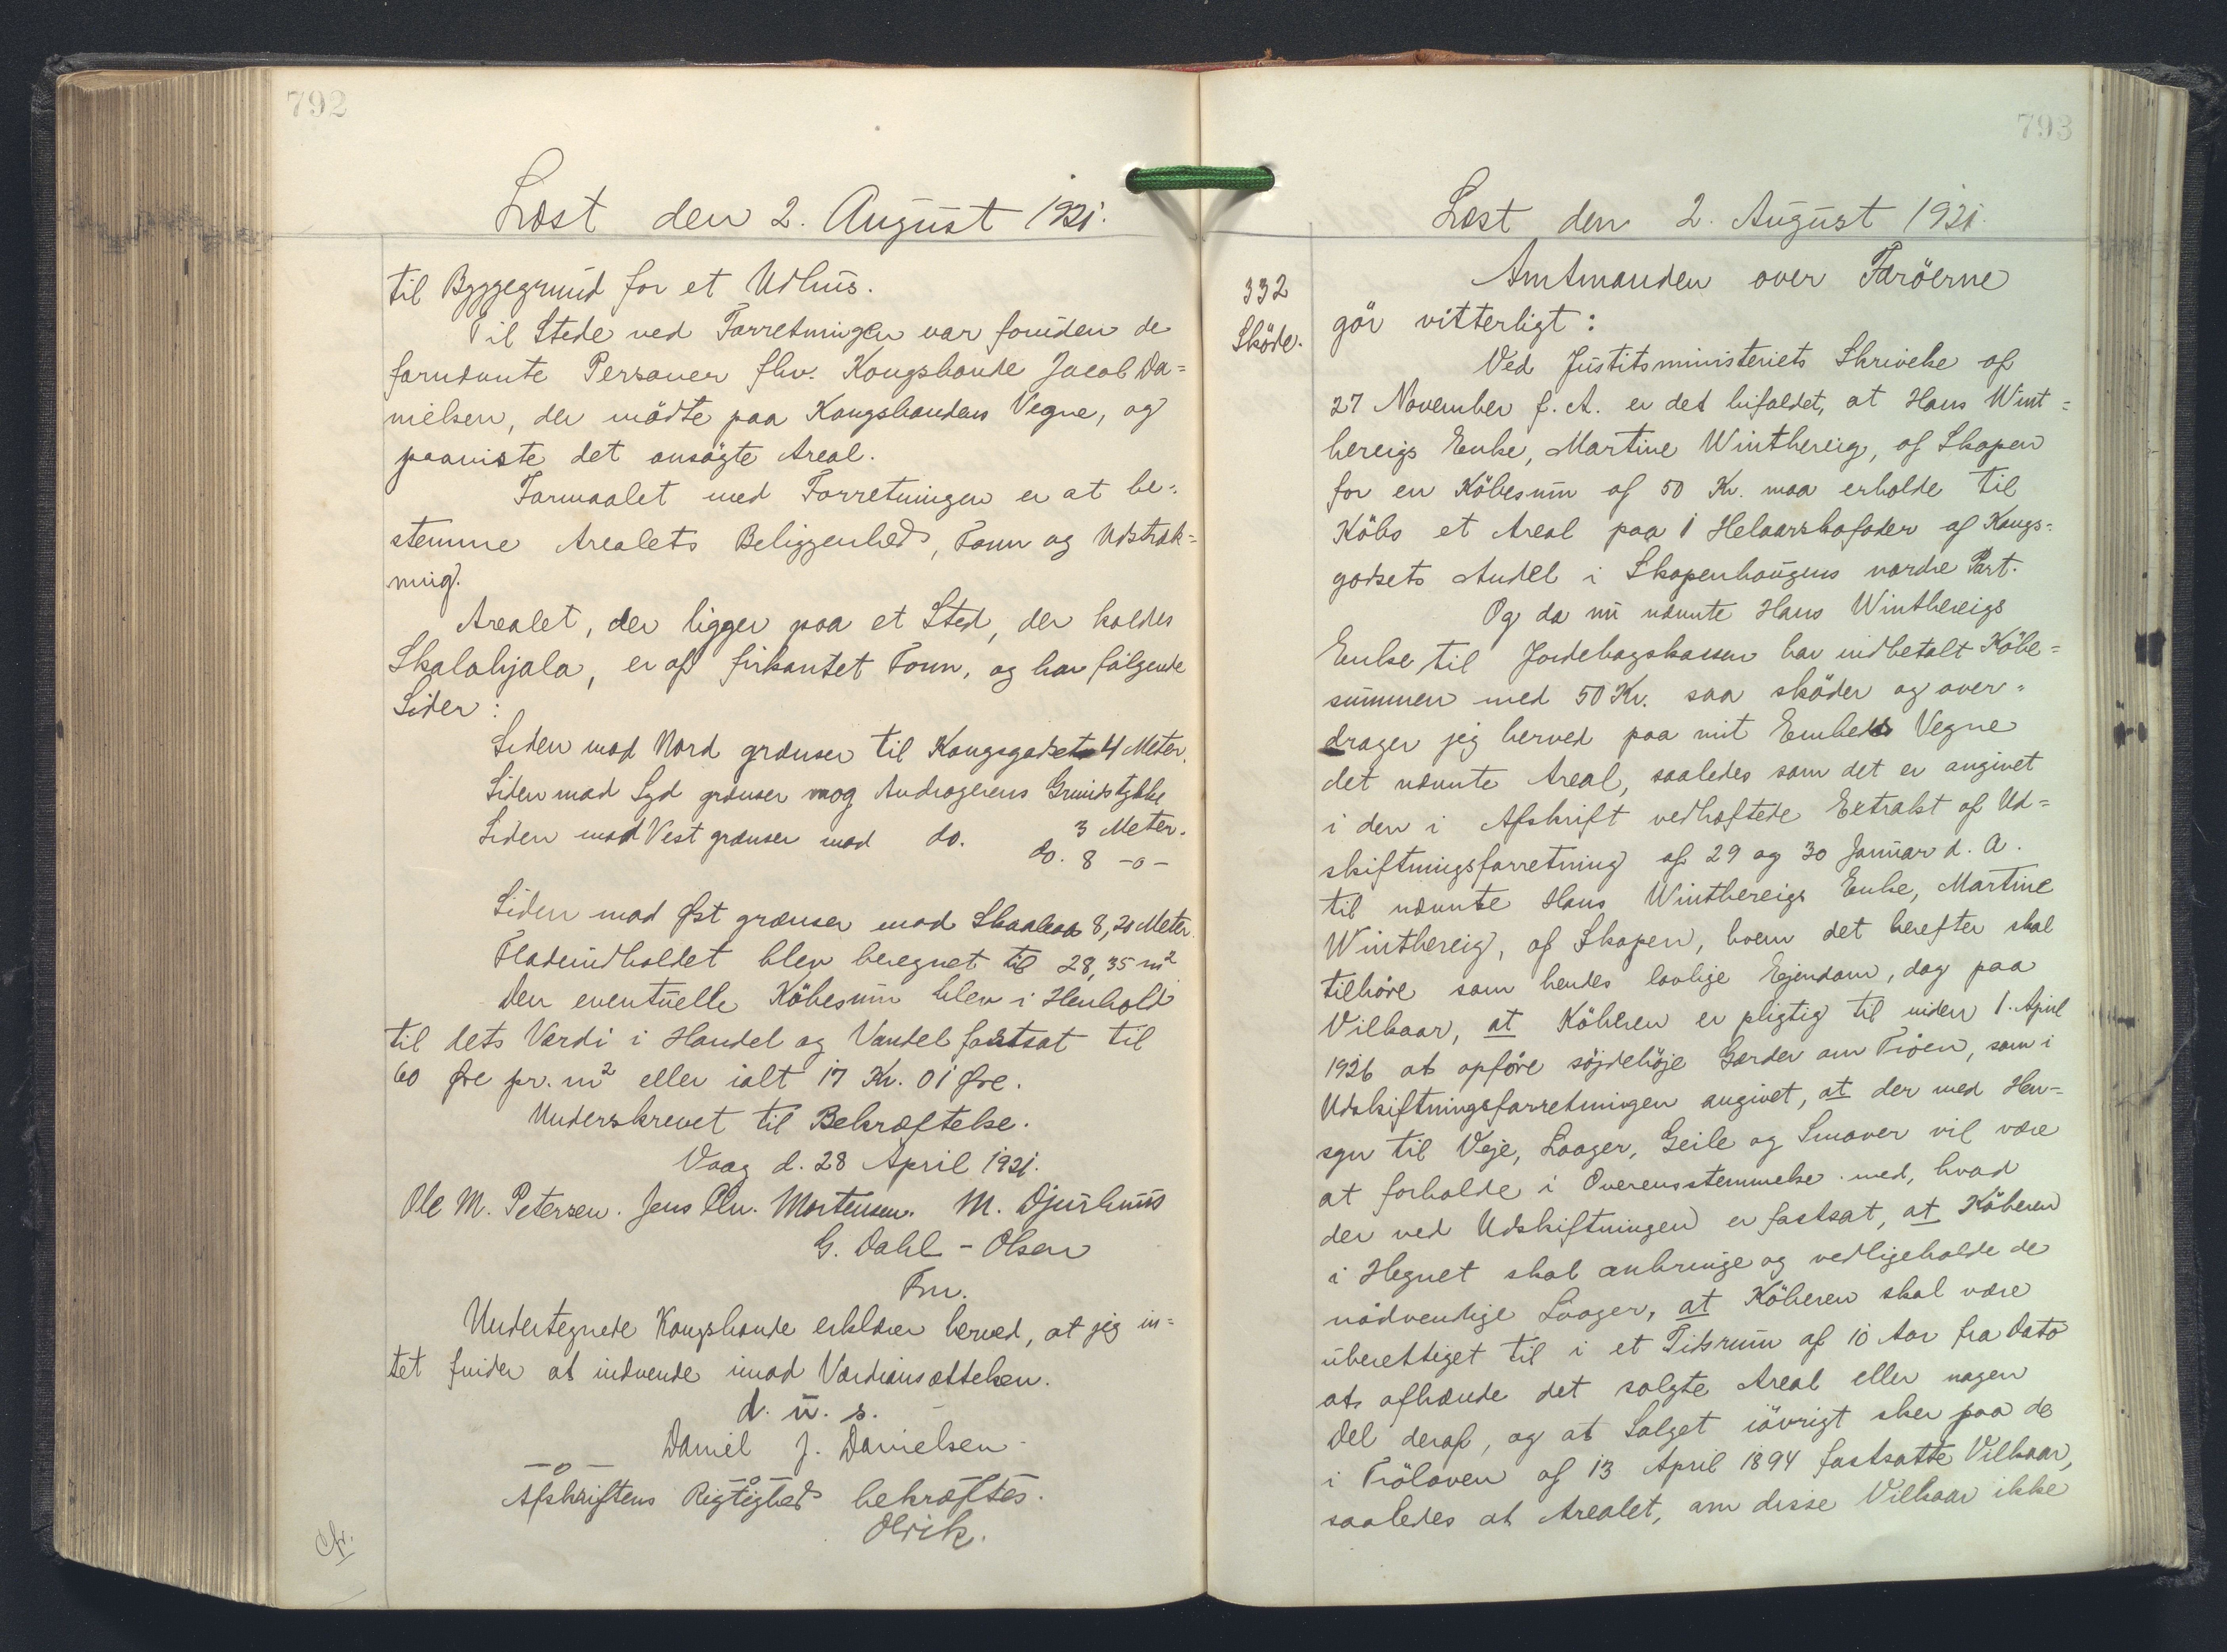 792
Læst den 2. August 1921.
til Byggegrund for et Udhus.
Til Stede ved Forretningen var foruden de
fornævnte Personer fhv. Kongsbonde Jacob Da=
nielsen, der mödte paa Kongsbondens Vegne, og
paaviste det ansögte Areal.
Formaalet med Forretningen er at be=
stemme Arealets Beliggenhed, Form og Udstræk=
ning.
Arealet, der ligger paa et Sted, der kaldes
Skalahjala, er af firkantet Form, og har fölgende
Sider:
Siden mod Nord grænser til Kongsgodset 4 Meter.
Siden mod Syd grænser mog Andragerens Grundstykke
3 Meter.
Siden mod Vest grænser mod do. do. 8 -o-
Siden mod Øst grænser mod Skaalaa 8,20 Meter.
Fladeindholdet blev beregnet til 28,35 m²
Den eventuelle Köbesum blev i Henhold
til dets Værdi i Handel og Vandel fastsat til
60 Øre pr. m² eller ialt 17 Kr. 01 Øre.
Underskrevet til Bekræftelse.
Vaag d. 28 April 1921.
Ole M. Petersen. Jens Chr. Mortensen. M. Djurhuus
G. Dahl-Olsen
Fm.
Undertegnede Kongsbonde erklærer herved, at jeg in=
tet finder at indvende imod Værdiansættelsen.
d. u. s.
Daniel J. Danielsen
-o- -o-
Afskriftens Rigtighed bekræftes.
Olrik.
793
Læst den 2. August 1921.
332
Sköde.
Amtmanden over Færöerne
gör vitterligt:
Ved Justitsministeriets Skrivelse af
27 November f. A. er det bifaldet, at Hans Wint=
hereigs Enke, Martine Winthereig, af Skopen
for en Köbesum af 50 Kr. maa erholde til
Köbs et Areal paa 1 Helaarskofoder af Kongs=
godsets Andel i Skopenhougens nordre Part.
Og da nu nævnte Hans Winthereigs
Enke til Jordebogskassen har indbetalt Köbe=
summen med 50 Kr. saa sköder og over=
drager jeg herved paa mit Embeds Vegne
det nævnte Areal, saaledes som det er angivet
i den i Afskrift vedhæftede Extrakt af Ud=
skiftningsforretning af 29 og 30 Januar d. A.
til nævnte Hans Winthereigs Enke, Martine
Winthereig, af Skopen, hvem det herefter skal
tilhöre som hendes lovlige Ejendom, dog paa
Vilkaar, at Köberen er pligtig til inden 1. April
1926 at opföre söjdehöje Gærder om Tröen, som i
Udskiftningsforretningen angivet, at der med Hen=
syn til Veje, Laager, Geile og Smover vil være
at forholde i Overensstemmelse med, hvad
der ved Udskiftningen er fastsat, at Köberen
i Hegnet skal anbringe og vedligeholde de
nödvendige Laager, at Köberen skal være
uberettiget til i et Tidsrum af 10 Aar fra Dato
at afhænde det solgte Areal eller nogen
Del deraf, og at Salget iövrigt sker paa de
i Tröloven af 13 April 1894 fastsatte Vilkaar,
saaledes at Arealet, om disse Vilkaar ikke